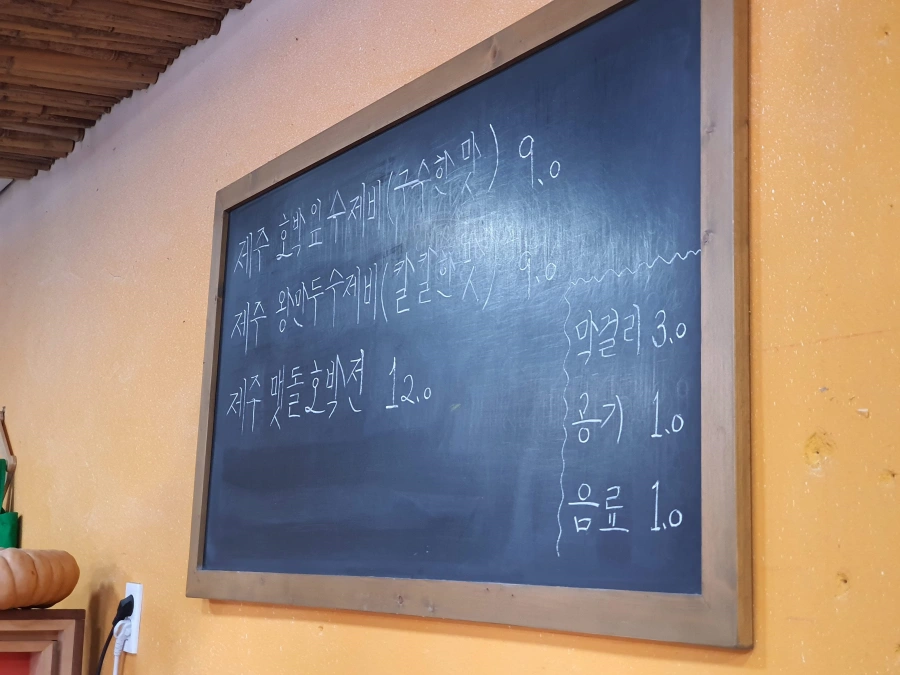 제주 호박잎 수제비(구수한맛) 9.0
제주 왕만두수제비(칼칼한맛) 9.0
제주 맷돌호박전 12.0
막걸리 3.0
공기 1.0
음료 1.0